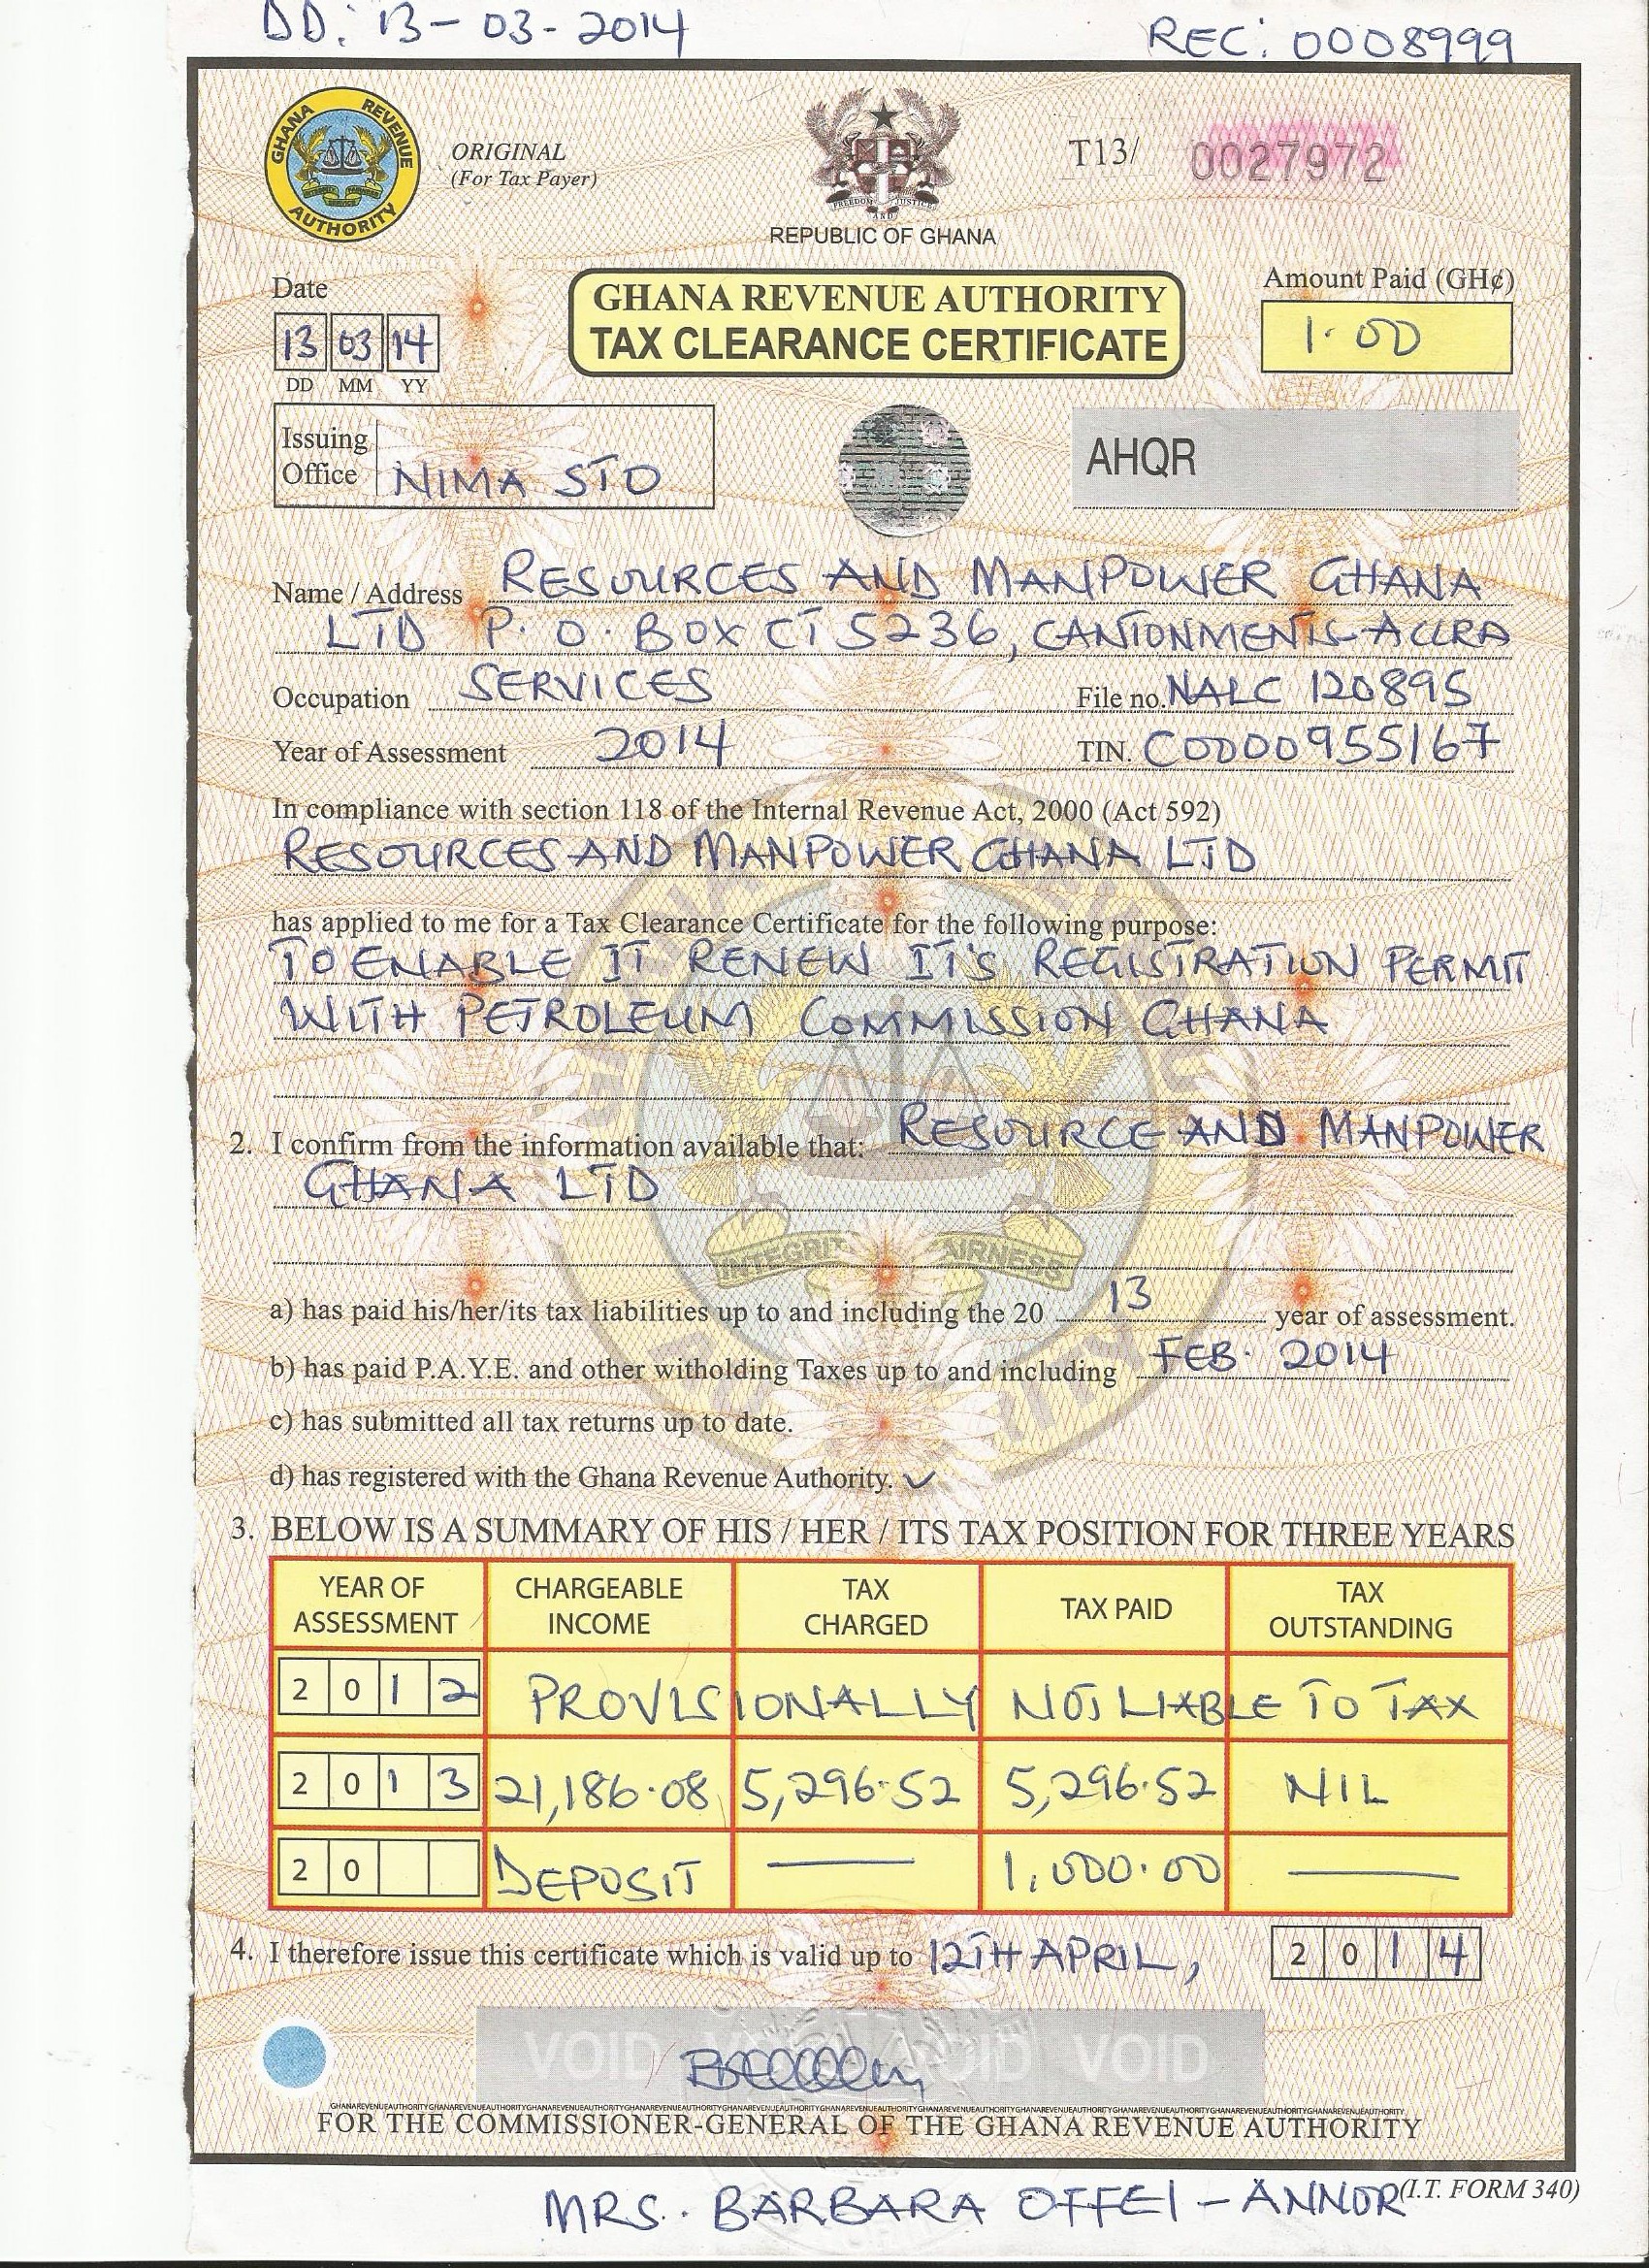 DD: 13-03-2014 REC: 0008999
GHANA REVENUE AUTHORITY
ORIGINAL
(For Tax Payer)
FREEDOM AND JUSTICE
REPUBLIC OF GHANA
T13/ 0027972
Date
13 03 14
DD MM YY
GHANA REVENUE AUTHORITY
TAX CLEARANCE CERTIFICATE
Amount Paid (GH¢)
1.00
Issuing
Office NIMA STO
AHQR
Name / Address RESOURCES AND MANPOWER GHANA
LTD P.O. BOX CT 5236, CANTONMENTS-ACCRA
Occupation SERVICES File no. NALC 120895
Year of Assessment 2014 TIN. C0000955167
In compliance with section 118 of the Internal Revenue Act, 2000 (Act 592)
RESOURCES AND MANPOWER GHANA LTD
has applied to me for a Tax Clearance Certificate for the following purpose:
TO ENABLE IT RENEW IT'S REGISTRATION PERMIT
WITH PETROLEUM COMMISSION GHANA
2. I confirm from the information available that: RESOURCE AND MANPOWER
GHANA LTD
INTEGRITY FAIRNESS
a) has paid his/her/its tax liabilities up to and including the 20 13 year of assessment.
b) has paid P.A.Y.E. and other witholding Taxes up to and including FEB. 2014
c) has submitted all tax returns up to date.
d) has registered with the Ghana Revenue Authority. ✓
3. BELOW IS A SUMMARY OF HIS / HER / ITS TAX POSITION FOR THREE YEARS
YEAR OF ASSESSMENT CHARGEABLE INCOME TAX CHARGED TAX PAID TAX OUTSTANDING
2012 PROVISIONALLY NOT LIABLE TO TAX
2013 21,186.08 5,296.52 5,296.52 NIL
20 DEPOSIT — 1,000.00 —
4. I therefore issue this certificate which is valid up to 12TH APRIL, 2014
VOID VOID VOID VOID
FOR THE COMMISSIONER-GENERAL OF THE GHANA REVENUE AUTHORITY
(I.T. FORM 340)
MRS. BARBARA OFFEI - ANNOR